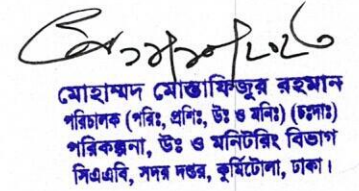 ১৯/১০/২০২৩
মোহাম্মদ মোস্তাফিজুর রহমান
পরিচালক (পরিঃ, প্রশিঃ, উঃ ও মনিঃ) (চঃদাঃ)
পরিকল্পনা, উঃ ও মনিটরিং বিভাগ
সিএএবি, সদর দপ্তর, কুর্মিটোলা, ঢাকা।